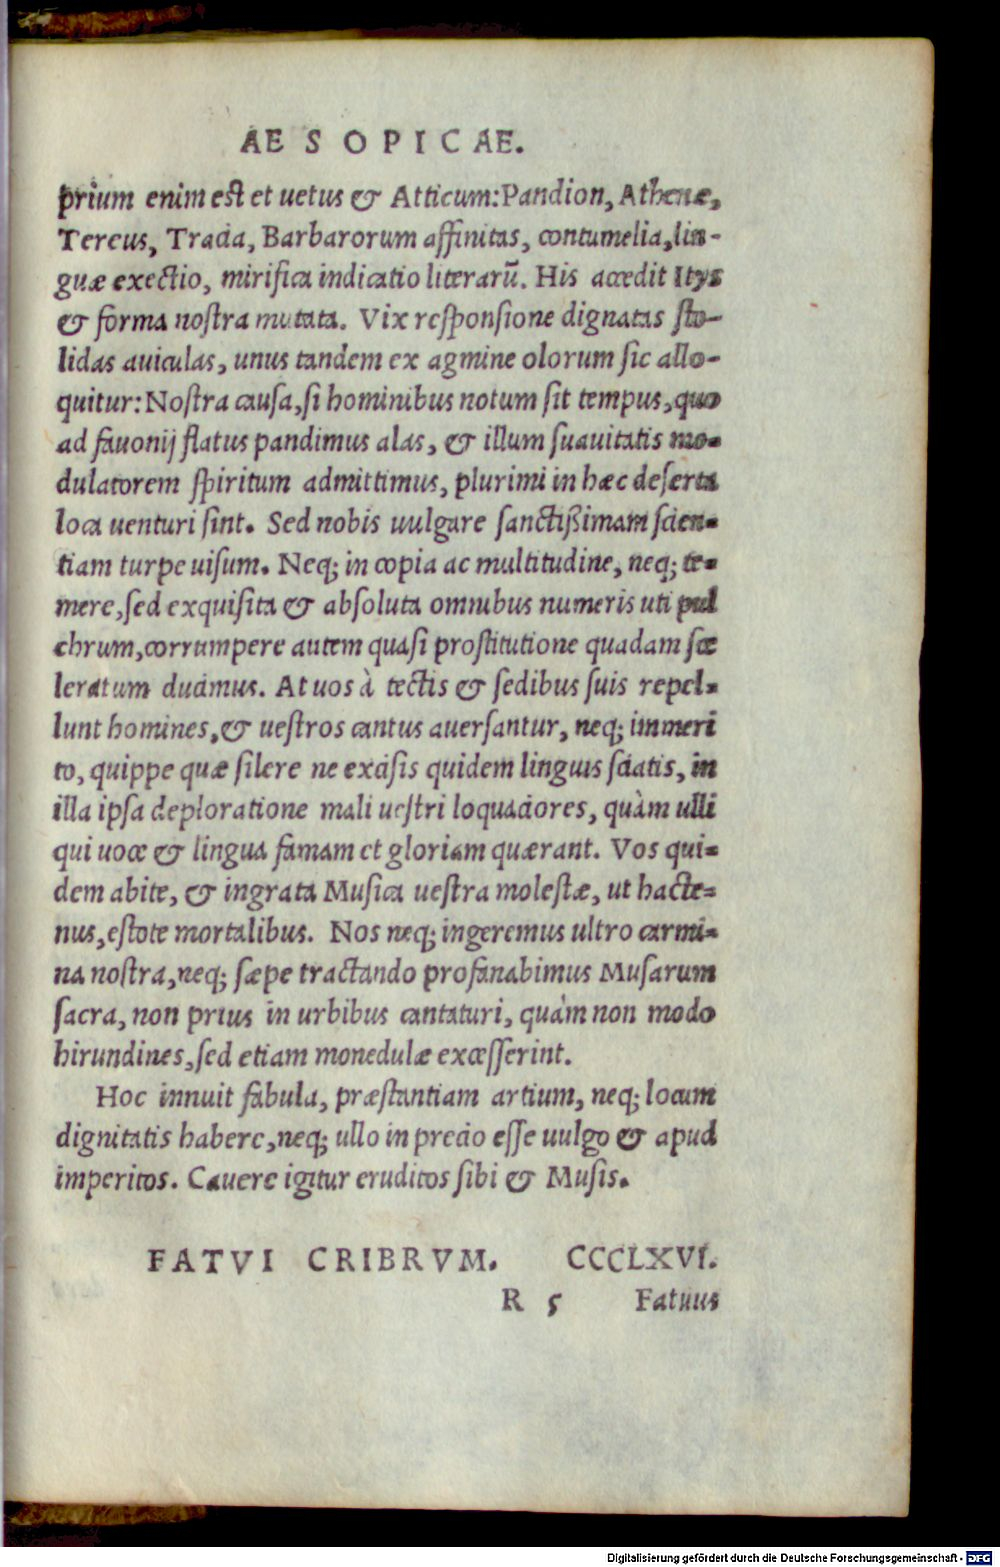 AESOPICAE.
prium enim est et uetus & Atticum: Pandion, Athenæ,
Tereus, Tracia, Barbarorum affinitas, contumelia, lin-
guæ exectio, mirifica indicatio literarū. His accedit Itys
& forma nostra mutata. Vix responsione dignatas sto-
lidas auiculas, unus tandem ex agmine olorum sic allo-
quitur: Nostra causa, si hominibus notum sit tempus, quo
ad fauonij flatus pandimus alas, & illum suauitatis mo-
dulatorem spiritum admittimus, plurimi in hæc deserta
loca uenturi sint. Sed nobis uulgare sanctißimam scien-
tiam turpe uisum. Neq; in copia ac multitudine, neq; te-
mere, sed exquisita & absoluta omnibus numeris uti pul
chrum, corrumpere autem quasi prostitutione quadam sce
leratum ducimus. At uos à tectis & sedibus suis repel-
lunt homines, & uestros cantus auersantur, neq; immeri
to, quippe quæ silere ne excisis quidem linguis sciatis, in
illa ipsa deploratione mali uestri loquaciores, quàm ulli
qui uoce & lingua famam et gloriam quærant. Vos qui-
dem abite, & ingrata Musica uestra molestæ, ut hacte-
nus, estote mortalibus. Nos neq; ingeremus ultro carmi-
na nostra, neq; sæpe tractando profanabimus Musarum
sacra, non prius in urbibus cantaturi, quàm non modo
hirundines, sed etiam monedulæ excesserint.
Hoc innuit fabula, præstantiam artium, neq; locum
dignitatis habere, neq; ullo in precio esse uulgo & apud
imperitos. Cauere igitur eruditos sibi & Musis.
FATVI CRIBRVM. CCCLXVI.
R 5 Fatuus
Digitalisierung gefördert durch die Deutsche Forschungsgemeinschaft - DFG